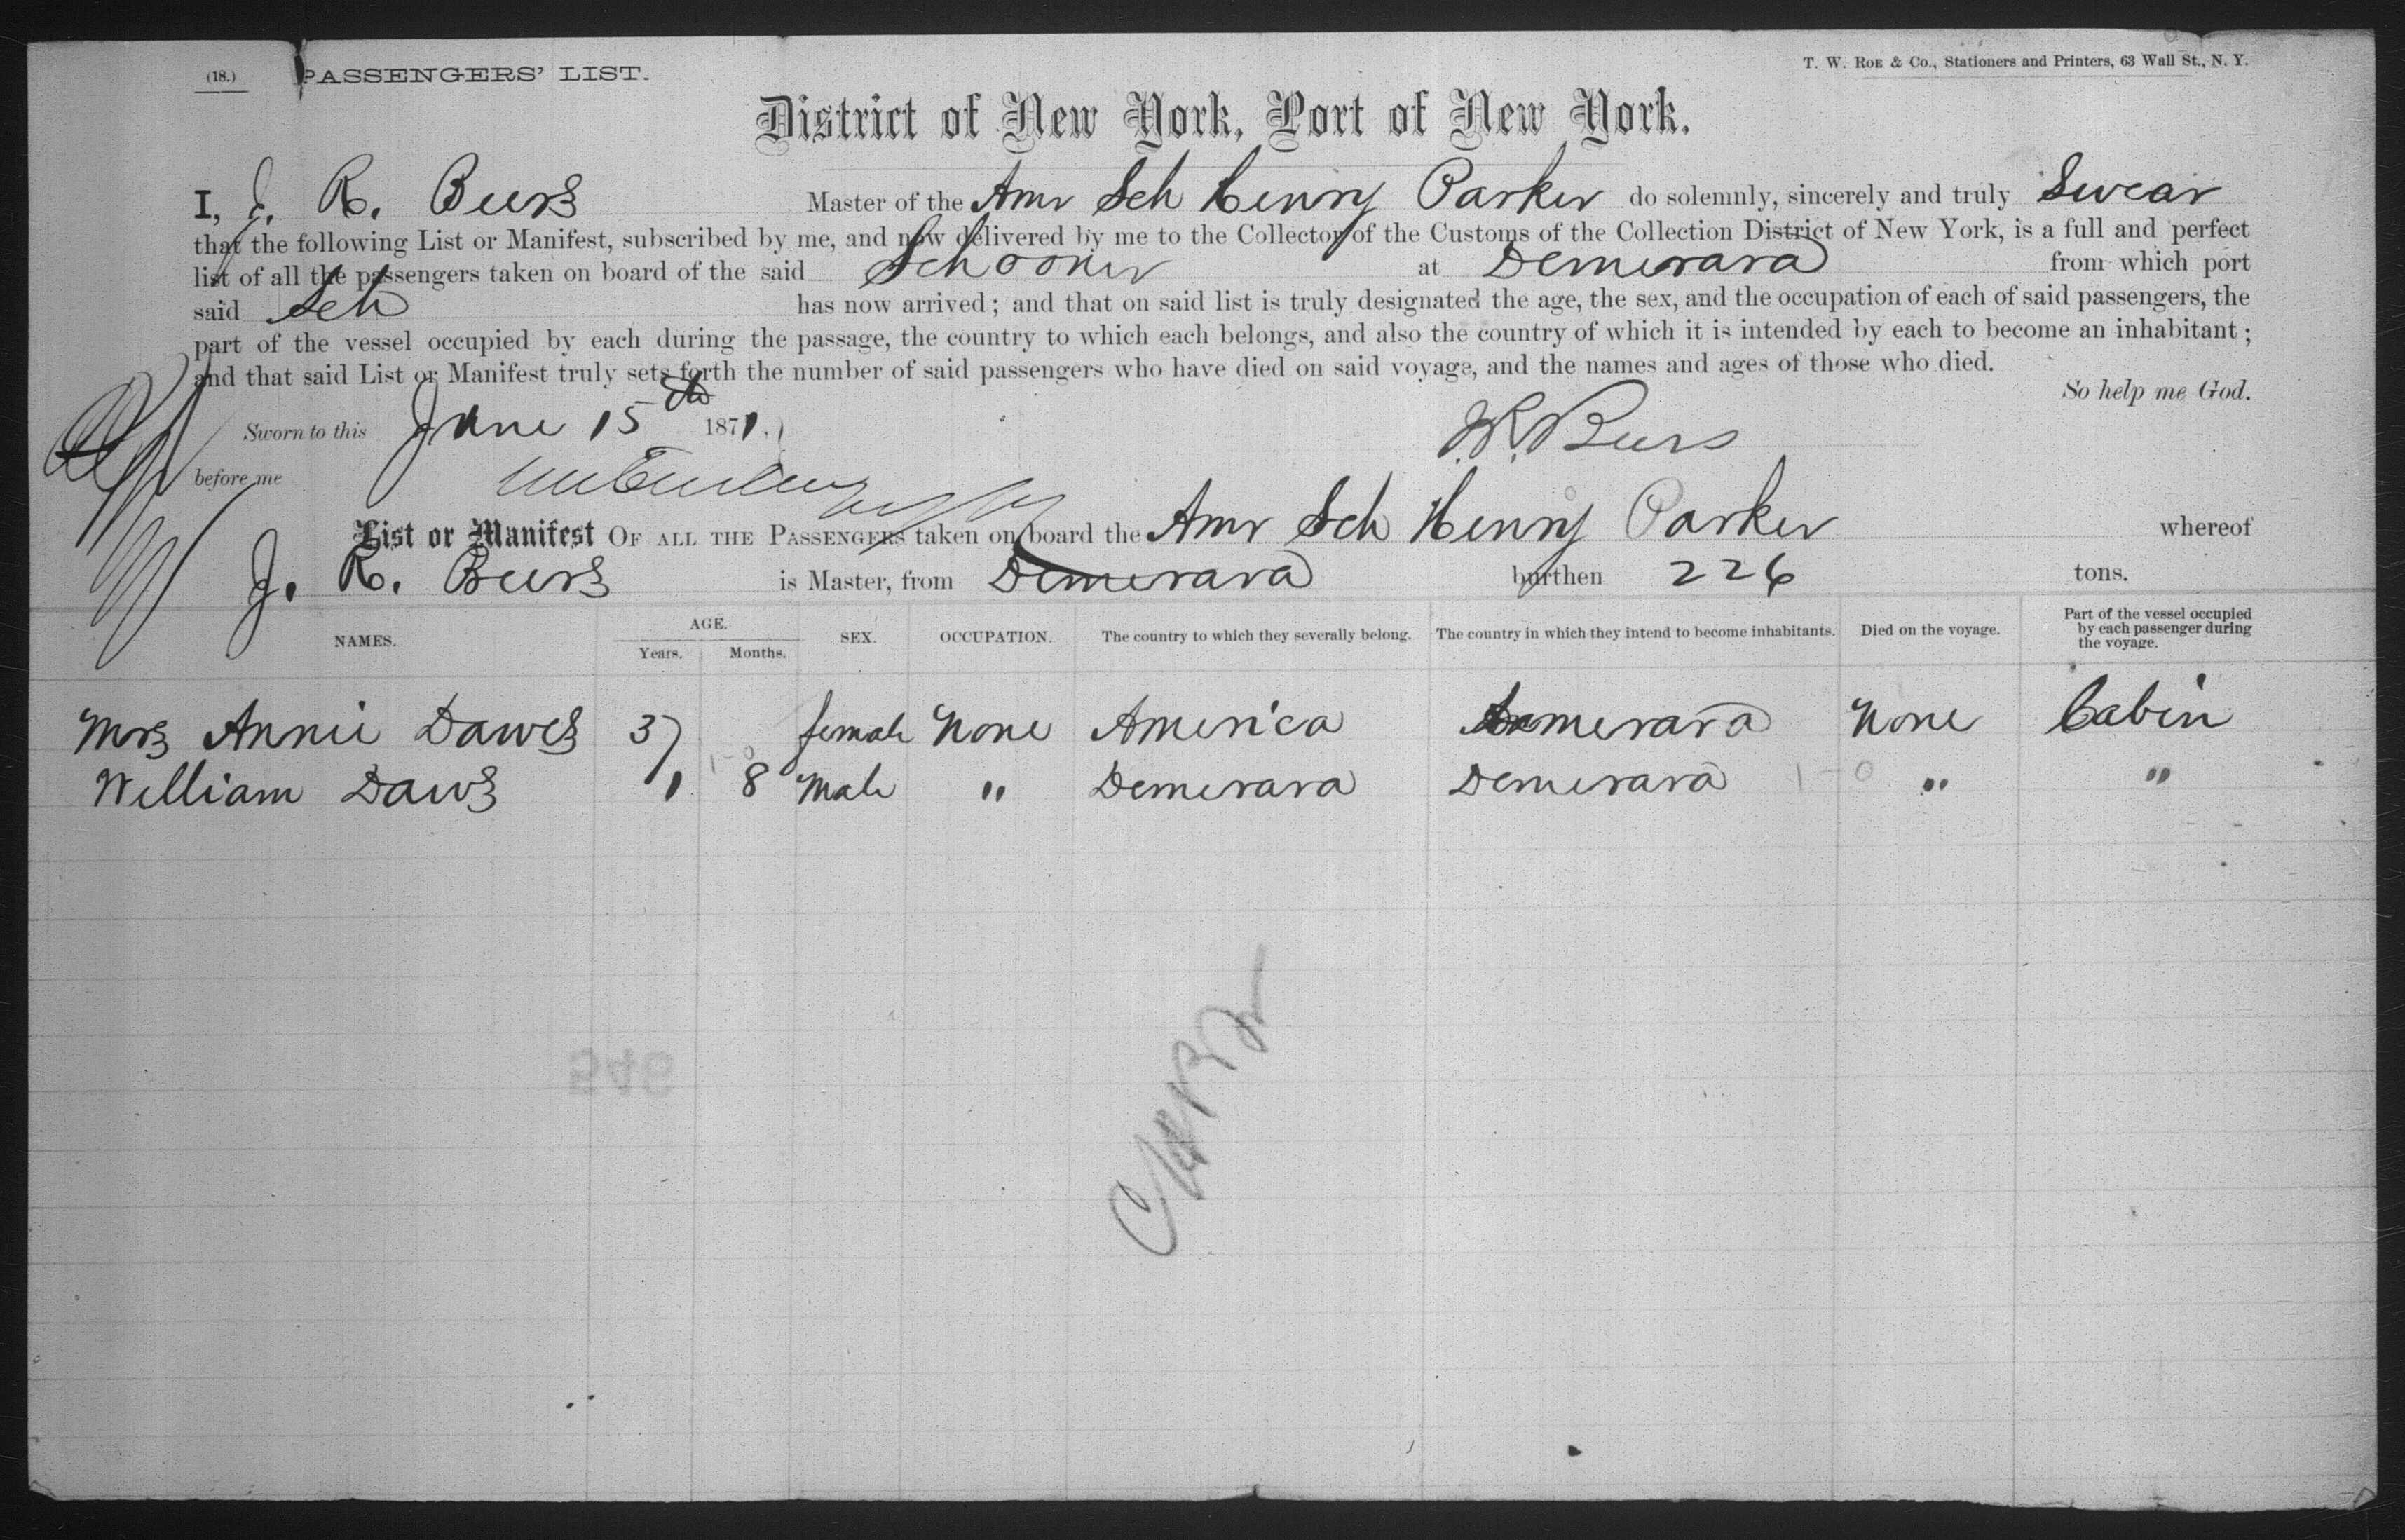 (18.) PASSENGERS' LIST.
T. W. Roe & Co., Stationers and Printers, 63 Wall St., N. Y.
District of New York, Port of New York.
I, J. R. Beers Master of the Amr Sch Henry Parker do solemnly, sincerely and truly Swear
that the following List or Manifest, subscribed by me, and now delivered by me to the Collector of the Customs of the Collection District of New York, is a full and perfect
list of all the passengers taken on board of the said Schooner at Demerara from which port
said Sch has now arrived; and that on said list is truly designated the age, the sex, and the occupation of each of said passengers, the
part of the vessel occupied by each during the passage, the country to which each belongs, and also the country of which it is intended by each to become an inhabitant;
and that said List or Manifest truly sets forth the number of said passengers who have died on said voyage, and the names and ages of those who died.
So help me God.
Sworn to this June 15th 1871.
J. R. Beers
before me
List or Manifest OF ALL THE PASSENGERS taken on board the Amr Sch Henry Parker whereof
J. R. Beers is Master, from Demerara burthen 226 tons.
NAMES. AGE. Years. Months. SEX. OCCUPATION. The country to which they severally belong. The country in which they intend to become inhabitants. Died on the voyage. Part of the vessel occupied by each passenger during the voyage.
Mrs Annie Dawes 37 female None America Demerara None Cabin
William Daws 1 8 Male " Demerara Demerara " "
546